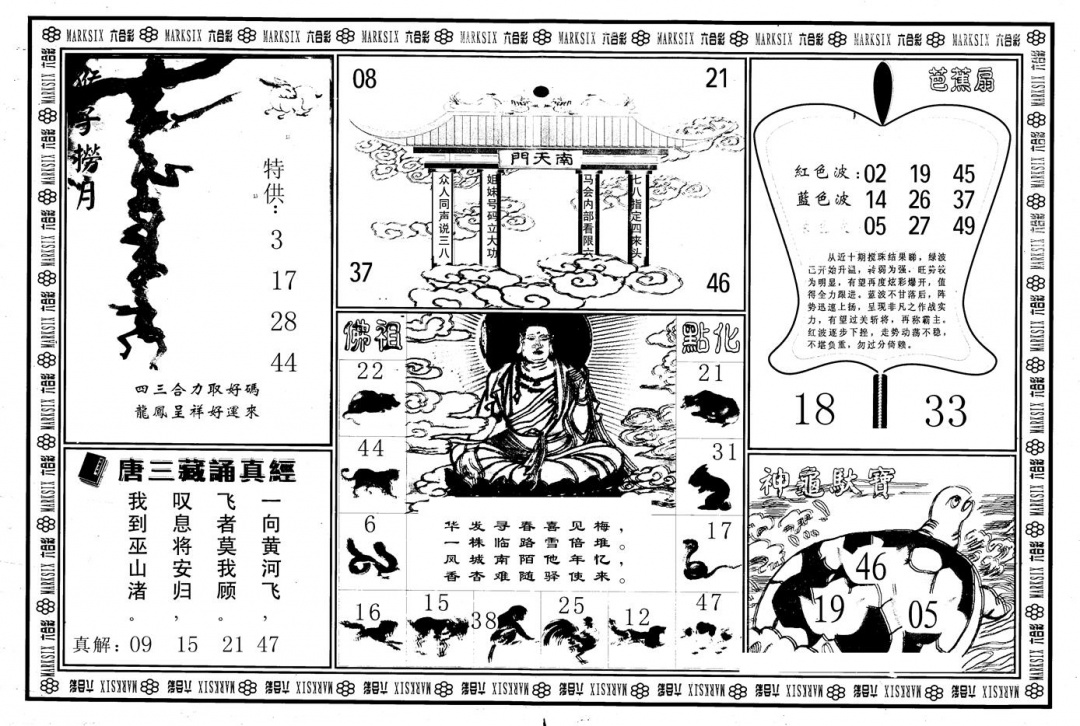 MARKSIX 六合彩 MARKSIX 六合彩 MARKSIX 六合彩 MARKSIX 六合彩 MARKSIX 六合彩 MARKSIX 六合彩 MARKSIX 六合彩 MARKSIX 六合彩 MARKSIX 六合彩 MARKSIX 六合彩
猴子撈月
特供：
3
17
28
44
四三合力取好碼
龍鳳呈祥好運來
唐三藏誦真經
一向黄河飞，
飞者莫我顾。
叹息将安归，
我到巫山渚。
真解：09 15 21 47
08
21
南天門
七八指定四来头
马会内部看限六
姐妹号码立大功
众人同声说三八
37
46
佛祖
點化
22
21
44
31
6
17
16
15
38
25
12
47
华发寻春喜见梅，
一株临路雪倍堆。
凤城南陌他年忆，
香杏难随驿使来。
芭蕉扇
紅色波：02 19 45
藍色波 14 26 37
05 27 49
从近十期搅珠结果睇，绿波
已开始升温，转弱为强，旺势较
为明显，有望再度炫彩爆开，值
得全力跟进。蓝波不甘落后，阵
势迅速上扬，呈现非凡之作战实
力，有望过关斩将，再称霸主。
红波逐步下挫，走势动荡不稳，
不堪负重，勿过分倚赖。
18
33
神龜馱寶
46
19
05
MARKSIX 六合彩 MARKSIX 六合彩 MARKSIX 六合彩 MARKSIX 六合彩 MARKSIX 六合彩 MARKSIX 六合彩 MARKSIX 六合彩 MARKSIX 六合彩 MARKSIX 六合彩 MARKSIX 六合彩